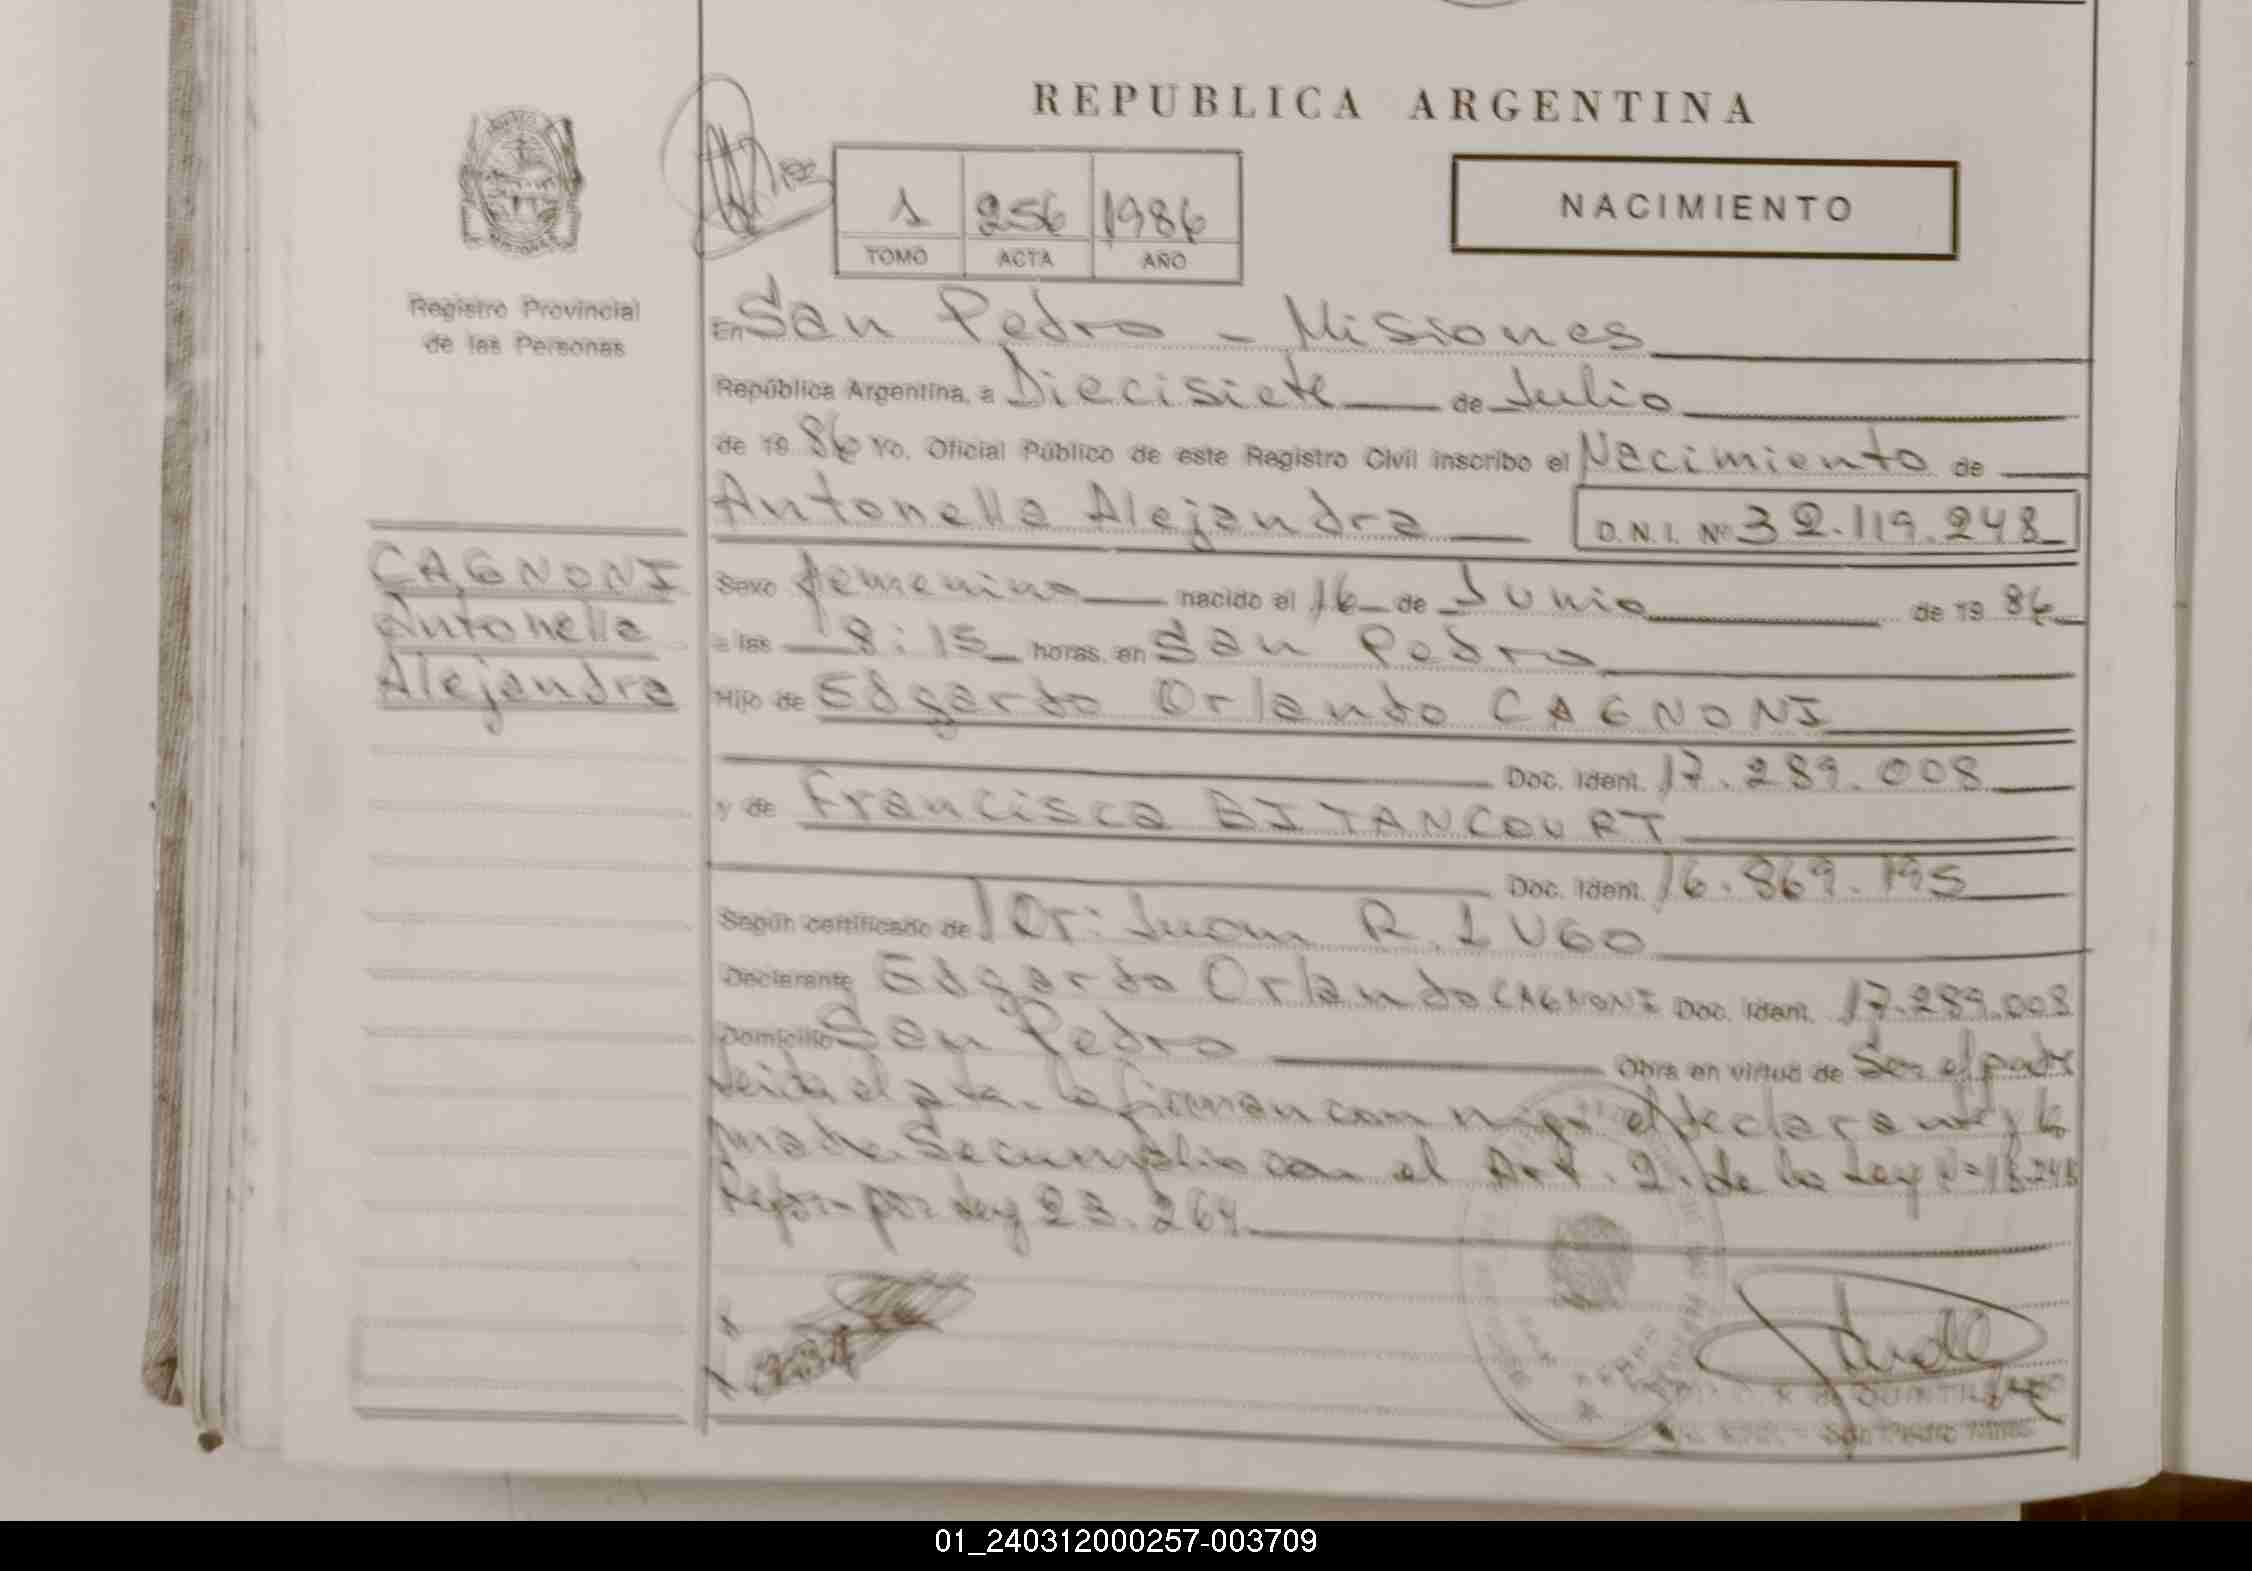 REPUBLICA ARGENTINA
NACIMIENTO
1 256 1986
TOMO ACTA AÑO
Registro Provincial
de las Personas
En San Pedro - Misiones
República Argentina, a Diecisiete de Julio
de 19 86 Yo, Oficial Público de este Registro Civil inscribo el Nacimiento de
Antonella Alejandra D.N.I. Nº 32.119.248
CAGNONI
Antonella
Alejandra
Sexo femenino nacido el 16 de Junio de 19 86
a las 8:15 horas, en San Pedro
Hijo de Edgardo Orlando CAGNONI
Doc. Ident. 17.289.008
y de Francisca BITANCOURT
Doc. Ident. 16.869.195
Según certificado de Dr: Juan R. LUGO
Declarante Edgardo Orlando CAGNONI Doc. Ident. 17.289.008
Domicilio San Pedro Obra en virtud de Ser el padre
leida el acta. la firman con migo el declarante y la
madre. Se cumplio con el Art. 2. de la Ley Nº 18.248
Refor. por Ley 23.264
01_240312000257-003709